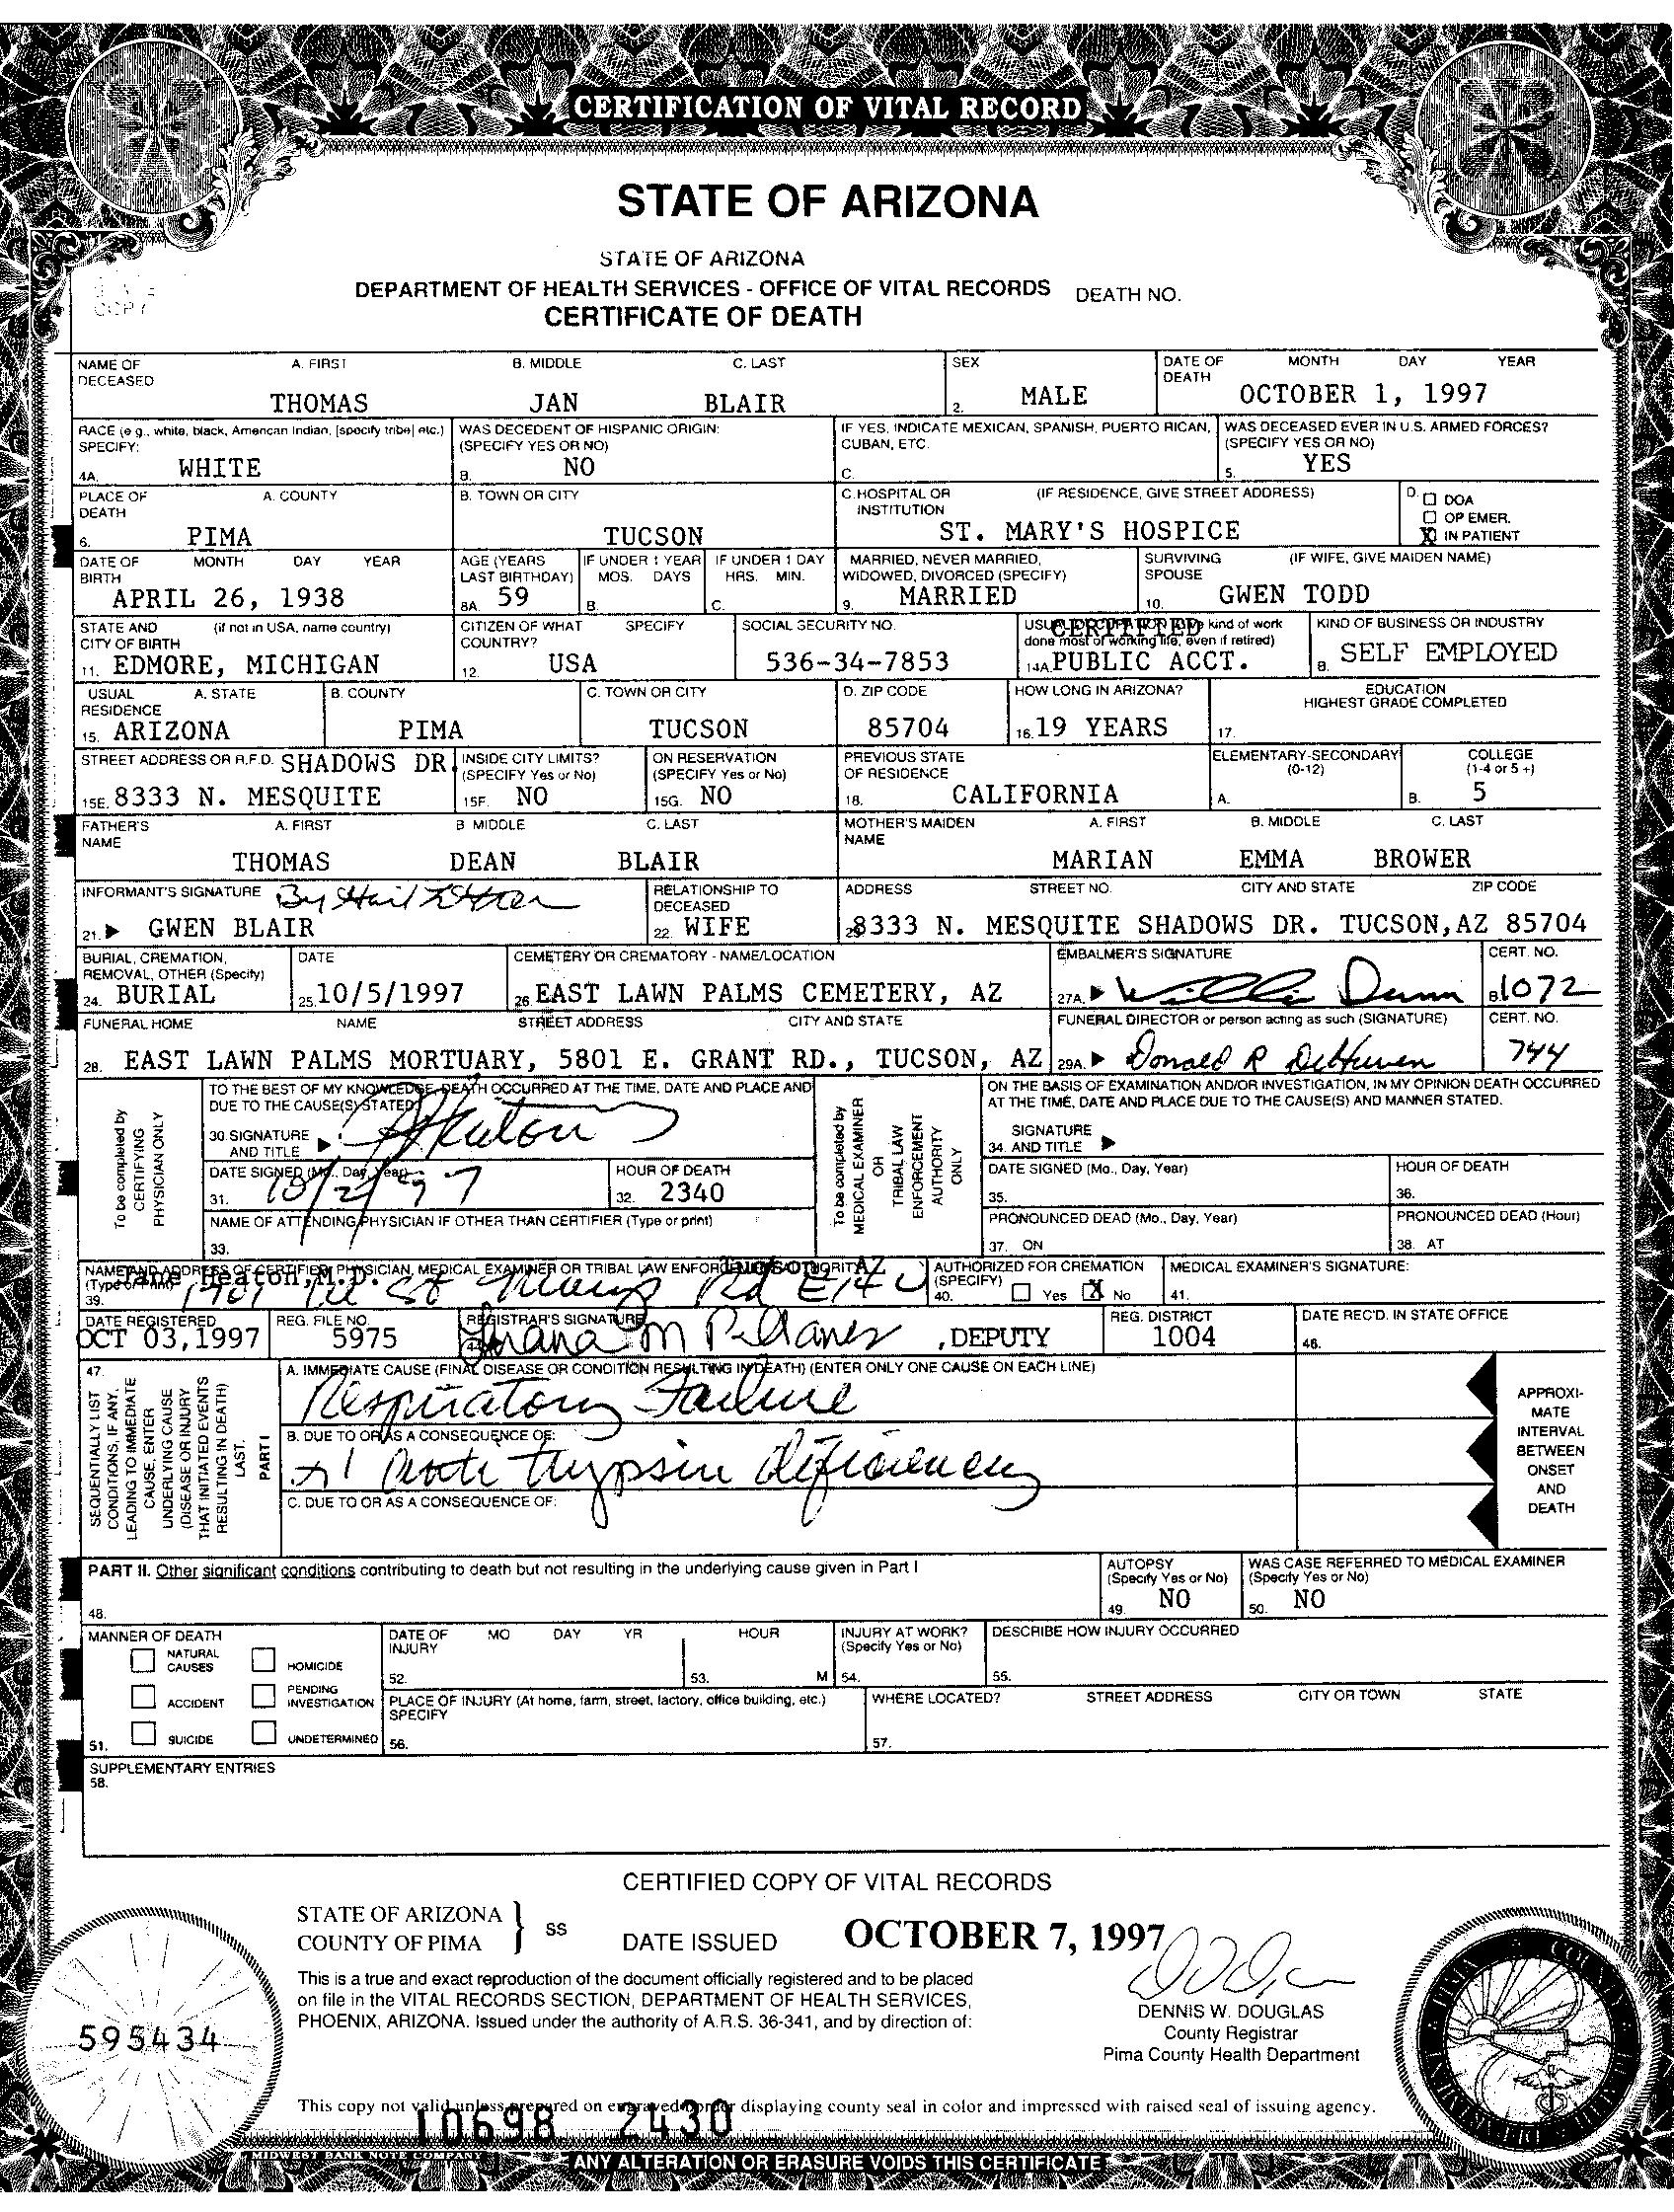 CERTIFICATION OF VITAL RECORD
STATE OF ARIZONA
STATE OF ARIZONA
COPY
DEPARTMENT OF HEALTH SERVICES - OFFICE OF VITAL RECORDS DEATH NO.
CERTIFICATE OF DEATH
NAME OF DECEASED A. FIRST B. MIDDLE C. LAST SEX DATE OF DEATH MONTH DAY YEAR
THOMAS JAN BLAIR 2. MALE OCTOBER 1, 1997
RACE (e.g., white, black, American Indian, [specify tribe] etc.) SPECIFY: WAS DECEDENT OF HISPANIC ORIGIN: (SPECIFY YES OR NO) IF YES, INDICATE MEXICAN, SPANISH, PUERTO RICAN, CUBAN, ETC. WAS DECEASED EVER IN U.S. ARMED FORCES? (SPECIFY YES OR NO)
4A. WHITE B. NO C. 5. YES
PLACE OF DEATH A. COUNTY B. TOWN OR CITY C. HOSPITAL OR INSTITUTION (IF RESIDENCE, GIVE STREET ADDRESS) D. DOA OP EMER. X IN PATIENT
6. PIMA TUCSON ST. MARY'S HOSPICE
DATE OF BIRTH MONTH DAY YEAR AGE (YEARS LAST BIRTHDAY) IF UNDER 1 YEAR MOS. DAYS IF UNDER 1 DAY HRS. MIN. MARRIED, NEVER MARRIED, WIDOWED, DIVORCED (SPECIFY) SURVIVING SPOUSE (IF WIFE, GIVE MAIDEN NAME)
APRIL 26, 1938 8A. 59 B. C. 9. MARRIED 10. GWEN TODD
STATE AND CITY OF BIRTH (if not in USA, name country) CITIZEN OF WHAT COUNTRY? SPECIFY SOCIAL SECURITY NO. USUAL OCCUPATION (Give kind of work done most of working life, even if retired) KIND OF BUSINESS OR INDUSTRY
11. EDMORE, MICHIGAN 12. USA 536-34-7853 14A. CERTIFIED PUBLIC ACCT. B. SELF EMPLOYED
USUAL RESIDENCE A. STATE B. COUNTY C. TOWN OR CITY D. ZIP CODE HOW LONG IN ARIZONA? EDUCATION HIGHEST GRADE COMPLETED
15. ARIZONA PIMA TUCSON 85704 16. 19 YEARS 17.
STREET ADDRESS OR R.F.D. SHADOWS DR. INSIDE CITY LIMITS? (SPECIFY Yes or No) ON RESERVATION (SPECIFY Yes or No) PREVIOUS STATE OF RESIDENCE ELEMENTARY-SECONDARY (0-12) COLLEGE (1-4 or 5 +)
15E. 8333 N. MESQUITE 15F. NO 15G. NO 18. CALIFORNIA A. B. 5
FATHER'S NAME A. FIRST B MIDDLE C. LAST MOTHER'S MAIDEN NAME A. FIRST B. MIDDLE C. LAST
THOMAS DEAN BLAIR MARIAN EMMA BROWER
INFORMANT'S SIGNATURE By RELATIONSHIP TO DECEASED ADDRESS STREET NO. CITY AND STATE ZIP CODE
21. GWEN BLAIR 22. WIFE 23. 8333 N. MESQUITE SHADOWS DR. TUCSON, AZ 85704
BURIAL, CREMATION, REMOVAL, OTHER (Specify) DATE CEMETERY OR CREMATORY - NAME/LOCATION EMBALMER'S SIGNATURE CERT. NO.
24. BURIAL 25. 10/5/1997 26. EAST LAWN PALMS CEMETERY, AZ 27A. Willi Dunn B. 1072
FUNERAL HOME NAME STREET ADDRESS CITY AND STATE FUNERAL DIRECTOR or person acting as such (SIGNATURE) CERT. NO.
28. EAST LAWN PALMS MORTUARY, 5801 E. GRANT RD., TUCSON, AZ 29A. Donald R DeHaven 744
To be completed by CERTIFYING PHYSICIAN ONLY
TO THE BEST OF MY KNOWLEDGE, DEATH OCCURRED AT THE TIME, DATE AND PLACE AND DUE TO THE CAUSE(S) STATED
30. SIGNATURE AND TITLE Heaton
DATE SIGNED (Mo., Day, Year) HOUR OF DEATH
31. 10/2/97 32. 2340
NAME OF ATTENDING PHYSICIAN IF OTHER THAN CERTIFIER (Type or print)
33.
To be completed by MEDICAL EXAMINER OR TRIBAL LAW ENFORCEMENT AUTHORITY ONLY
ON THE BASIS OF EXAMINATION AND/OR INVESTIGATION, IN MY OPINION DEATH OCCURRED AT THE TIME, DATE AND PLACE DUE TO THE CAUSE(S) AND MANNER STATED.
34. SIGNATURE AND TITLE
DATE SIGNED (Mo., Day, Year) HOUR OF DEATH
35. 36.
PRONOUNCED DEAD (Mo., Day, Year) PRONOUNCED DEAD (Hour)
37. ON 38. AT
NAME AND ADDRESS OF CERTIFIER, PHYSICIAN, MEDICAL EXAMINER OR TRIBAL LAW ENFORCEMENT AUTHORITY (Type or Print) AUTHORIZED FOR CREMATION (SPECIFY) MEDICAL EXAMINER'S SIGNATURE:
39. Jane Heaton, M.D. St Marys Rd Tucson AZ 40. Yes X No 41.
DATE REGISTERED REG. FILE NO. REGISTRAR'S SIGNATURE REG. DISTRICT DATE REC'D. IN STATE OFFICE
OCT 03, 1997 5975 , DEPUTY 1004 46.
47.
SEQUENTIALLY LIST CONDITIONS, IF ANY, LEADING TO IMMEDIATE CAUSE, ENTER UNDERLYING CAUSE (DISEASE OR INJURY THAT INITIATED EVENTS RESULTING IN DEATH) LAST.
PART I
A. IMMEDIATE CAUSE (FINAL DISEASE OR CONDITION RESULTING IN DEATH) (ENTER ONLY ONE CAUSE ON EACH LINE)
Respiratory Failure
B. DUE TO OR AS A CONSEQUENCE OF:
trypsin deficiency
C. DUE TO OR AS A CONSEQUENCE OF:
APPROXI-
MATE
INTERVAL
BETWEEN
ONSET
AND
DEATH
PART II. Other significant conditions contributing to death but not resulting in the underlying cause given in Part I AUTOPSY (Specify Yes or No) WAS CASE REFERRED TO MEDICAL EXAMINER (Specify Yes or No)
48. 49. NO 50. NO
MANNER OF DEATH DATE OF INJURY MO DAY YR HOUR INJURY AT WORK? (Specify Yes or No) DESCRIBE HOW INJURY OCCURRED
NATURAL CAUSES HOMICIDE
52. 53. M 54. 55.
ACCIDENT PENDING INVESTIGATION PLACE OF INJURY (At home, farm, street, factory, office building, etc.) SPECIFY WHERE LOCATED? STREET ADDRESS CITY OR TOWN STATE
51. SUICIDE UNDETERMINED 56. 57.
SUPPLEMENTARY ENTRIES
58.
CERTIFIED COPY OF VITAL RECORDS
STATE OF ARIZONA
COUNTY OF PIMA } SS DATE ISSUED OCTOBER 7, 1997
This is a true and exact reproduction of the document officially registered and to be placed
on file in the VITAL RECORDS SECTION, DEPARTMENT OF HEALTH SERVICES,
PHOENIX, ARIZONA. Issued under the authority of A.R.S. 36-341, and by direction of:
DENNIS W. DOUGLAS
County Registrar
Pima County Health Department
595434
PIMA COUNTY HEALTH DEPARTMENT
This copy not valid unless prepared on engraved border displaying county seal in color and impressed with raised seal of issuing agency.
10698 2430
MIDWEST BANK NOTE COMPANY
ANY ALTERATION OR ERASURE VOIDS THIS CERTIFICATE